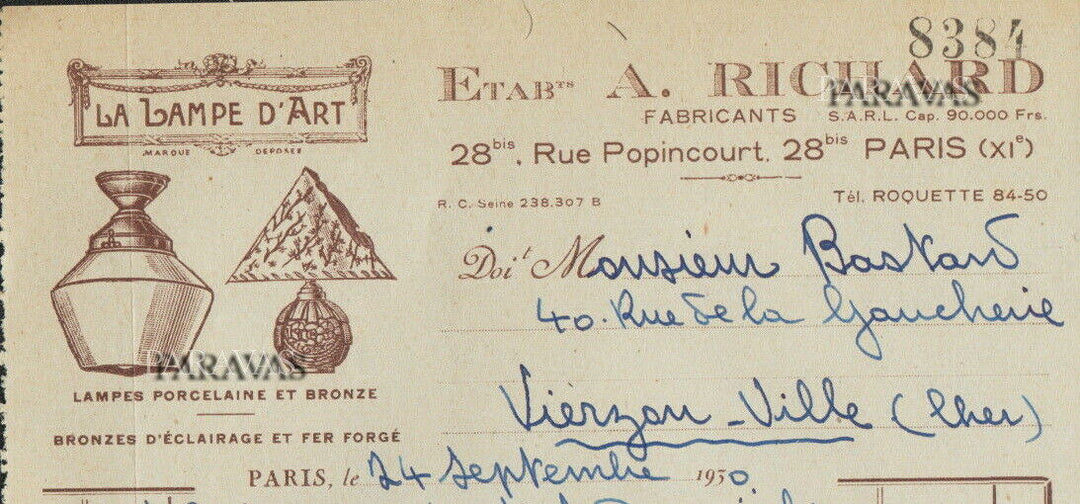 8384
LA LAMPE D'ART
MARQUE DEPOSÉE
ETABTS A. RICHARD
PARAVAS
FABRICANTS S.A.R.L. Cap. 90.000 Frs.
28bis, Rue Popincourt. 28bis PARIS (XIe)
R. C. Seine 238.307 B
Tél. ROQUETTE 84-50
Doit Monsieur Bastard
40. Rue de la Gaucherie
Vierzon-Ville (Cher)
PARAVAS
LAMPES PORCELAINE ET BRONZE
BRONZES D'ÉCLAIRAGE ET FER FORGÉ
PARIS, le 24 Septembre 1930